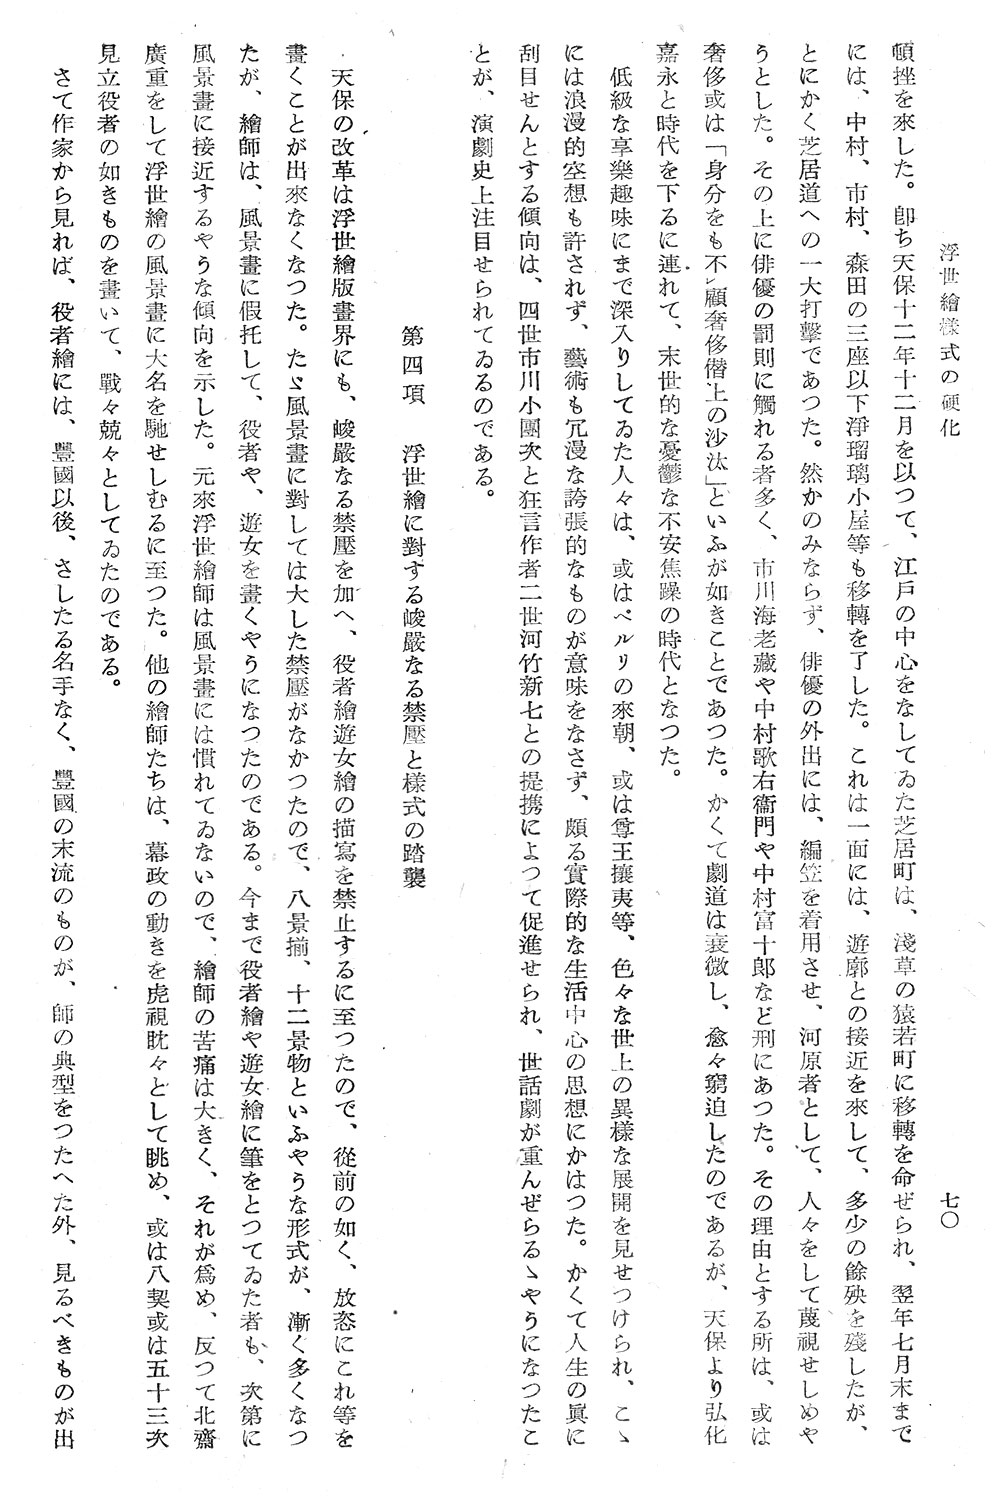 浮世繪樣式の硬化
七〇
頓挫を來した。卽ち天保十二年十二月を以つて、江戶の中心をなしてゐた芝居町は、淺草の猿若町に移轉を命ぜられ、翌年七月末まで
には、中村、市村、森田の三座以下淨瑠璃小屋等も移轉を了した。これは一面には、遊廓との接近を來して、多少の餘殃を殘したが、
とにかく芝居道への一大打擊であつた。然かのみならず、俳優の外出には、編笠を着用させ、河原者として、人々をして蔑視せしめや
うとした。その上に俳優の罰則に觸れる者多く、市川海老藏や中村歌右衞門や中村富十郞など刑にあつた。その理由とする所は、或は
奢侈或は「身分をも不レ顧奢侈僭上の沙汰」といふが如きことであつた。かくて劇道は衰微し、愈々窮迫したのであるが、天保より弘化
嘉永と時代を下るに連れて、末世的な憂鬱な不安焦躁の時代となつた。
低級な享樂趣味にまで深入りしてゐた人々は、或はペルリの來朝、或は尊王攘夷等、色々な世上の異樣な展開を見せつけられ、こゝ
には浪漫的空想も許されず、藝術も冗漫な誇張的なものが意味をなさず、頗る實際的な生活中心の思想にかはつた。かくて人生の眞に
刮目せんとする傾向は、四世市川小團次と狂言作者二世河竹新七との提携によつて促進せられ、世話劇が重んぜらるゝやうになつたこ
とが、演劇史上注目せられてゐるのである。
第四項　浮世繪に對する峻嚴なる禁壓と樣式の踏襲
天保の改革は浮世繪版畫界にも、峻嚴なる禁壓を加へ、役者繪遊女繪の描寫を禁止するに至つたので、從前の如く、放恣にこれ等を
畫くことが出來なくなつた。たゞ風景畫に對しては大した禁壓がなかつたので、八景揃、十二景物といふやうな形式が、漸く多くなつ
たが、繪師は、風景畫に假托して、役者や、遊女を畫くやうになつたのである。今まで役者繪や遊女繪に筆をとつてゐた者も、次第に
風景畫に接近するやうな傾向を示した。元來浮世繪師は風景畫には慣れてゐないので、繪師の苦痛は大きく、それが爲め、反つて北齋
廣重をして浮世繪の風景畫に大名を馳せしむるに至つた。他の繪師たちは、幕政の動きを虎視眈々として眺め、或は八契或は五十三次
見立役者の如きものを畫いて、戰々兢々としてゐたのである。
さて作家から見れば、役者繪には、豐國以後、さしたる名手なく、豐國の末流のものが、師の典型をつたへた外、見るべきものが出